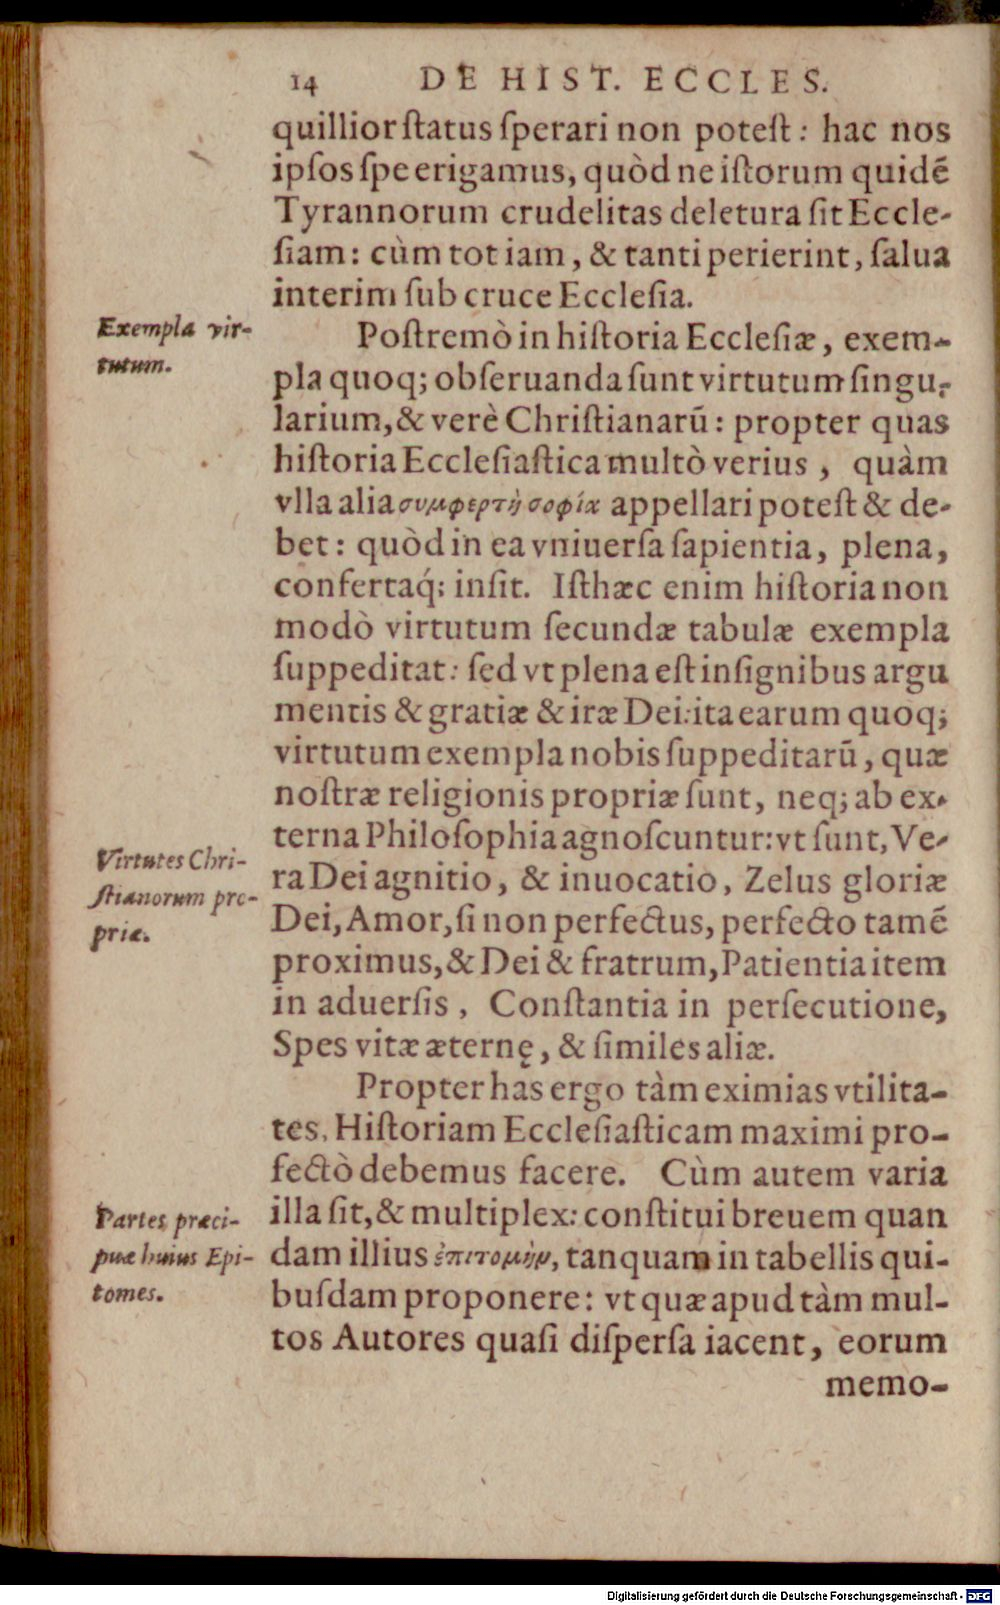 14 DE HIST. ECCLES.
quillior ſtatus ſperari non poteſt: hac nos
ipſos ſpe erigamus, quòd ne iſtorum quidẽ
Tyrannorum crudelitas deletura ſit Eccle-
ſiam: cùm tot iam, & tanti perierint, ſalua
interim ſub cruce Eccleſia.
Exempla vir-
tutum.
Poſtremò in hiſtoria Eccleſiæ, exem-
pla quoq; obſeruanda ſunt virtutum ſingu-
larium, & verè Chriſtianarũ: propter quas
hiſtoria Eccleſiaſtica multò verius, quàm
vlla alia συμφερτὴ σοφία appellari poteſt & de-
bet: quòd in ea vniuerſa ſapientia, plena,
confertaq́; inſit. Iſthæc enim hiſtoria non
modò virtutum ſecundæ tabulæ exempla
ſuppeditat: ſed vt plena eſt inſignibus argu
mentis & gratiæ & iræ Dei: ita earum quoq;
virtutum exempla nobis ſuppeditarũ, quæ
noſtræ religionis propriæ ſunt, neq; ab ex-
terna Philoſophia agnoſcuntur: vt ſunt, Ve-
Virtutes Chri-
ſtianorum pro-
priæ.
ra Dei agnitio, & inuocatio, Zelus gloriæ
Dei, Amor, ſi non perfectus, perfecto tamẽ
proximus, & Dei & fratrum, Patientia item
in aduerſis, Conſtantia in perſecutione,
Spes vitæ æternę, & ſimiles aliæ.
Propter has ergo tàm eximias vtilita-
tes, Hiſtoriam Eccleſiaſticam maximi pro-
fectò debemus facere. Cùm autem varia
Partes præci-
puæ huius Epi-
tomes.
illa ſit, & multiplex: conſtitui breuem quan
dam illius ἐπιτομὴν, tanquam in tabellis qui-
buſdam proponere: vt quæ apud tàm mul-
tos Autores quaſi diſperſa iacent, eorum
memo-
Digitalisierung gefördert durch die Deutsche Forschungsgemeinschaft - DFG